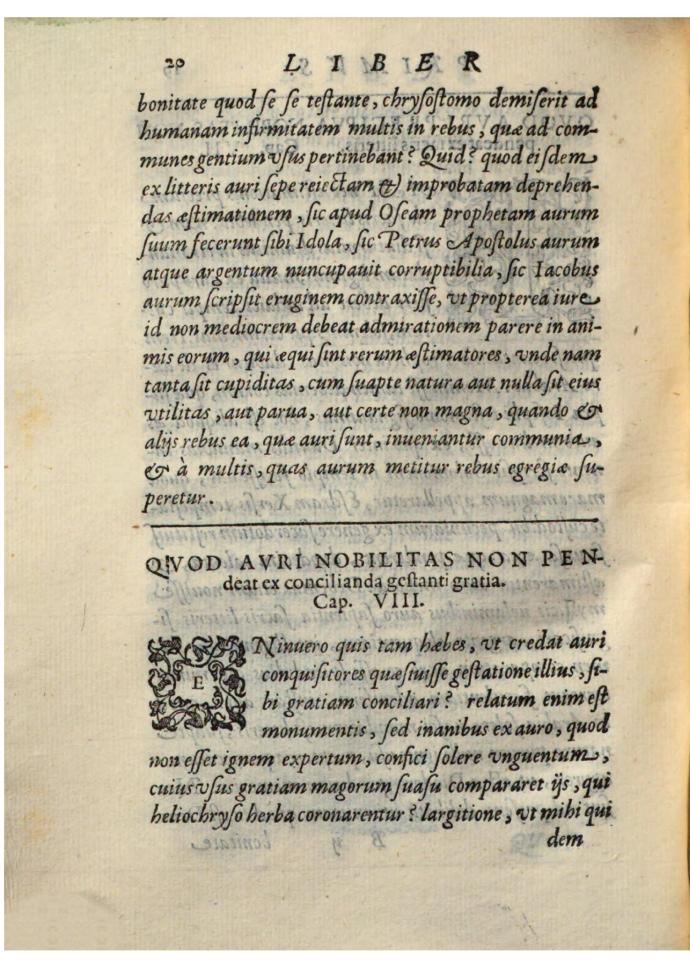 20 LIBER
bonitate quod se se testante, chrysostomo demiserit ad
humanam infirmitatem multis in rebus, quæ ad com-
munes gentium vsus pertinebant? Quid? quod eisdem
ex litteris auri sepe reiectam & improbatam deprehen-
das æstimationem, sic apud Oseam prophetam aurum
suum fecerunt sibi Idola, sic Petrus Apostolus aurum
atque argentum nuncupauit corruptibilia, sic Iacobus
aurum scripsit eruginem contraxisse, vt propterea iure
id non mediocrem debeat admirationem parere in ani-
mis eorum, qui æqui sint rerum æstimatores, vnde nam
tanta sit cupiditas, cum suapte natura aut nulla sit eius
vtilitas, aut parua, aut certe non magna, quando &
alijs rebus ea, quæ auri sunt, inueniantur communia,
& à multis, quas aurum metitur rebus egregiæ su-
peretur.
QVOD AVRI NOBILITAS NON PEN-
deat ex concilianda gestanti gratia.
Cap. VIII.
ENinuero quis tam hæbes, vt credat auri
conquisitores quæsiuisse gestatione illius, si-
bi gratiam conciliari? relatum enim est
monumentis, sed inanibus ex auro, quod
non esset ignem expertum, confici solere vnguentum,
cuius vsus gratiam magorum suasu compararet ijs, qui
heliochryso herba coronarentur? largitione, vt mihi qui
dem